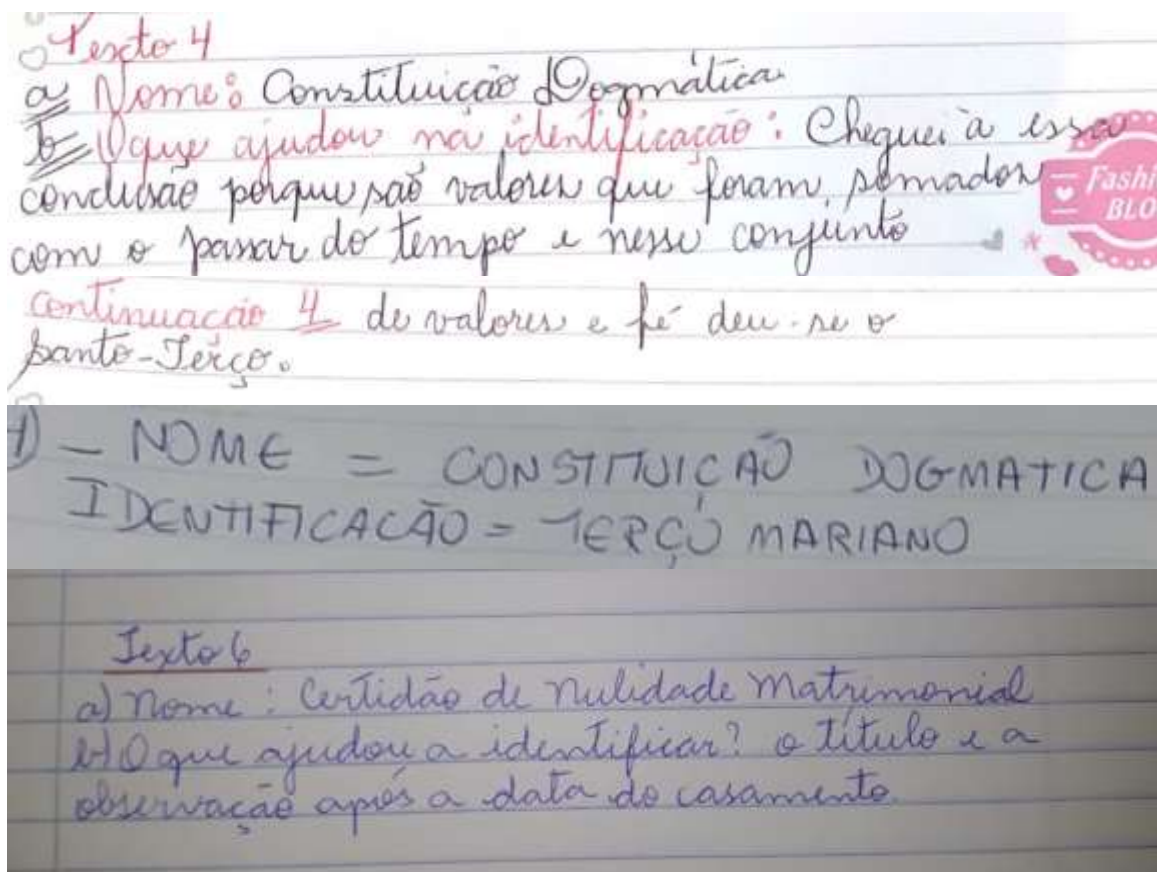 Texto 4
a Nome: Constituição Dogmática
b O que ajudou na identificação: Cheguei à essa
conclusão porque são valores que foram somados
com o passar do tempo e nesse conjunto
Fashi
BLO
continuação 4 de valores e fé deu-se o
santo-Terço.
- NOME = CONSTITUIÇÃO DOGMATICA
IDENTIFICACÃO = TERÇO MARIANO
Texto 6
a) Nome: Certidão de Nulidade Matrimonial
b) O que ajudou a identificar? o título e a
observação após a data do casamento.